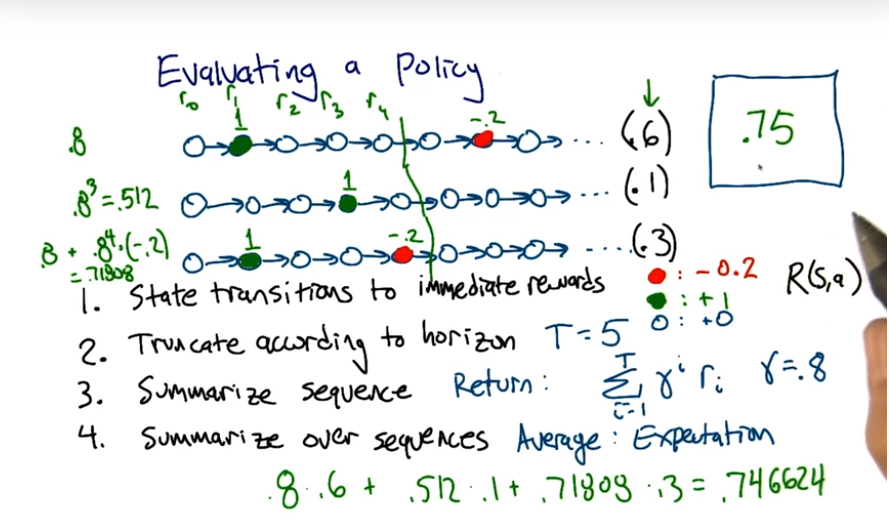 Evaluating a Policy
r0 r1 r2 r3 r4
.8 1 -.2 ... (.6) .75
.8³ = .512 1 ... (.1)
.8 + .8⁴·(-.2) = .71808 1 -.2 ... (.3)
: -0.2 R(s,a)
: +1
: +0
1. State transitions to immediate rewards
2. Truncate according to horizon T=5
3. Summarize sequence Return: Σ_{i=1}^{T} γ^i r_i γ=.8
4. Summarize over sequences Average: Expectation
.8·.6 + .512·.1 + .71808·.3 = .746624